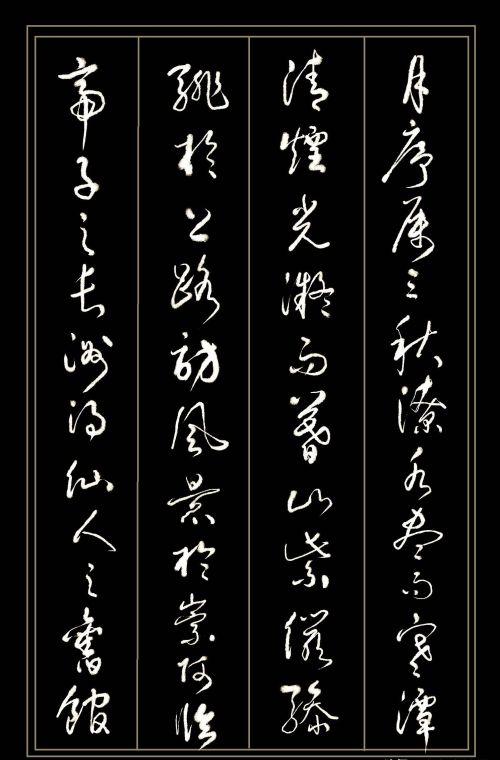 月序屬三秋潦水盡而寒潭
清煙光凝而暮山紫儼驂
騑於上路訪風景於崇阿臨
帝子之長洲得仙人之舊館